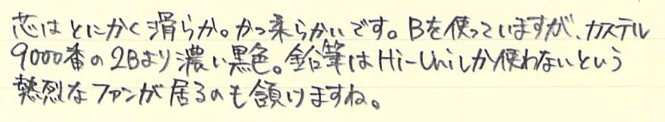 芯はとにかく滑らか。かつ柔らかいです。Bを使っていますが、カステル
9000番の2Bより濃い黒色。鉛筆はHi-Uniしか使わないという
熱烈なファンが居るのも頷けますね。